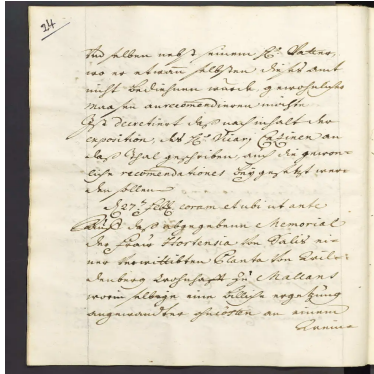 24
und selben nebst einem H. Vatter,
wo er etwann selbsten dises amt
nicht bedienen würde, gewohnlicher
maasen anrecomendieren möchte
Ist decretiert das nach inhalt der
exposition, des H.
an
das Thal geschriben, auch die gewon-
liche recomendationes beygesetzt wer-
den sollen
D. 27. coram et ubi ut ante
das abgegebene Memorial
der Frau Hortensia von Salis ei-
ner verwittibten Planta von Wil-
denberg wohnhafft zu Mallans
worin selbige eine billiche ergetzung
angewandter an einem